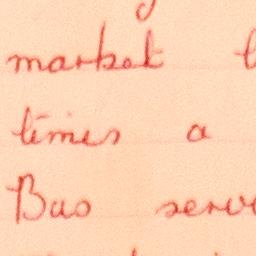 market
times a
Bus serv